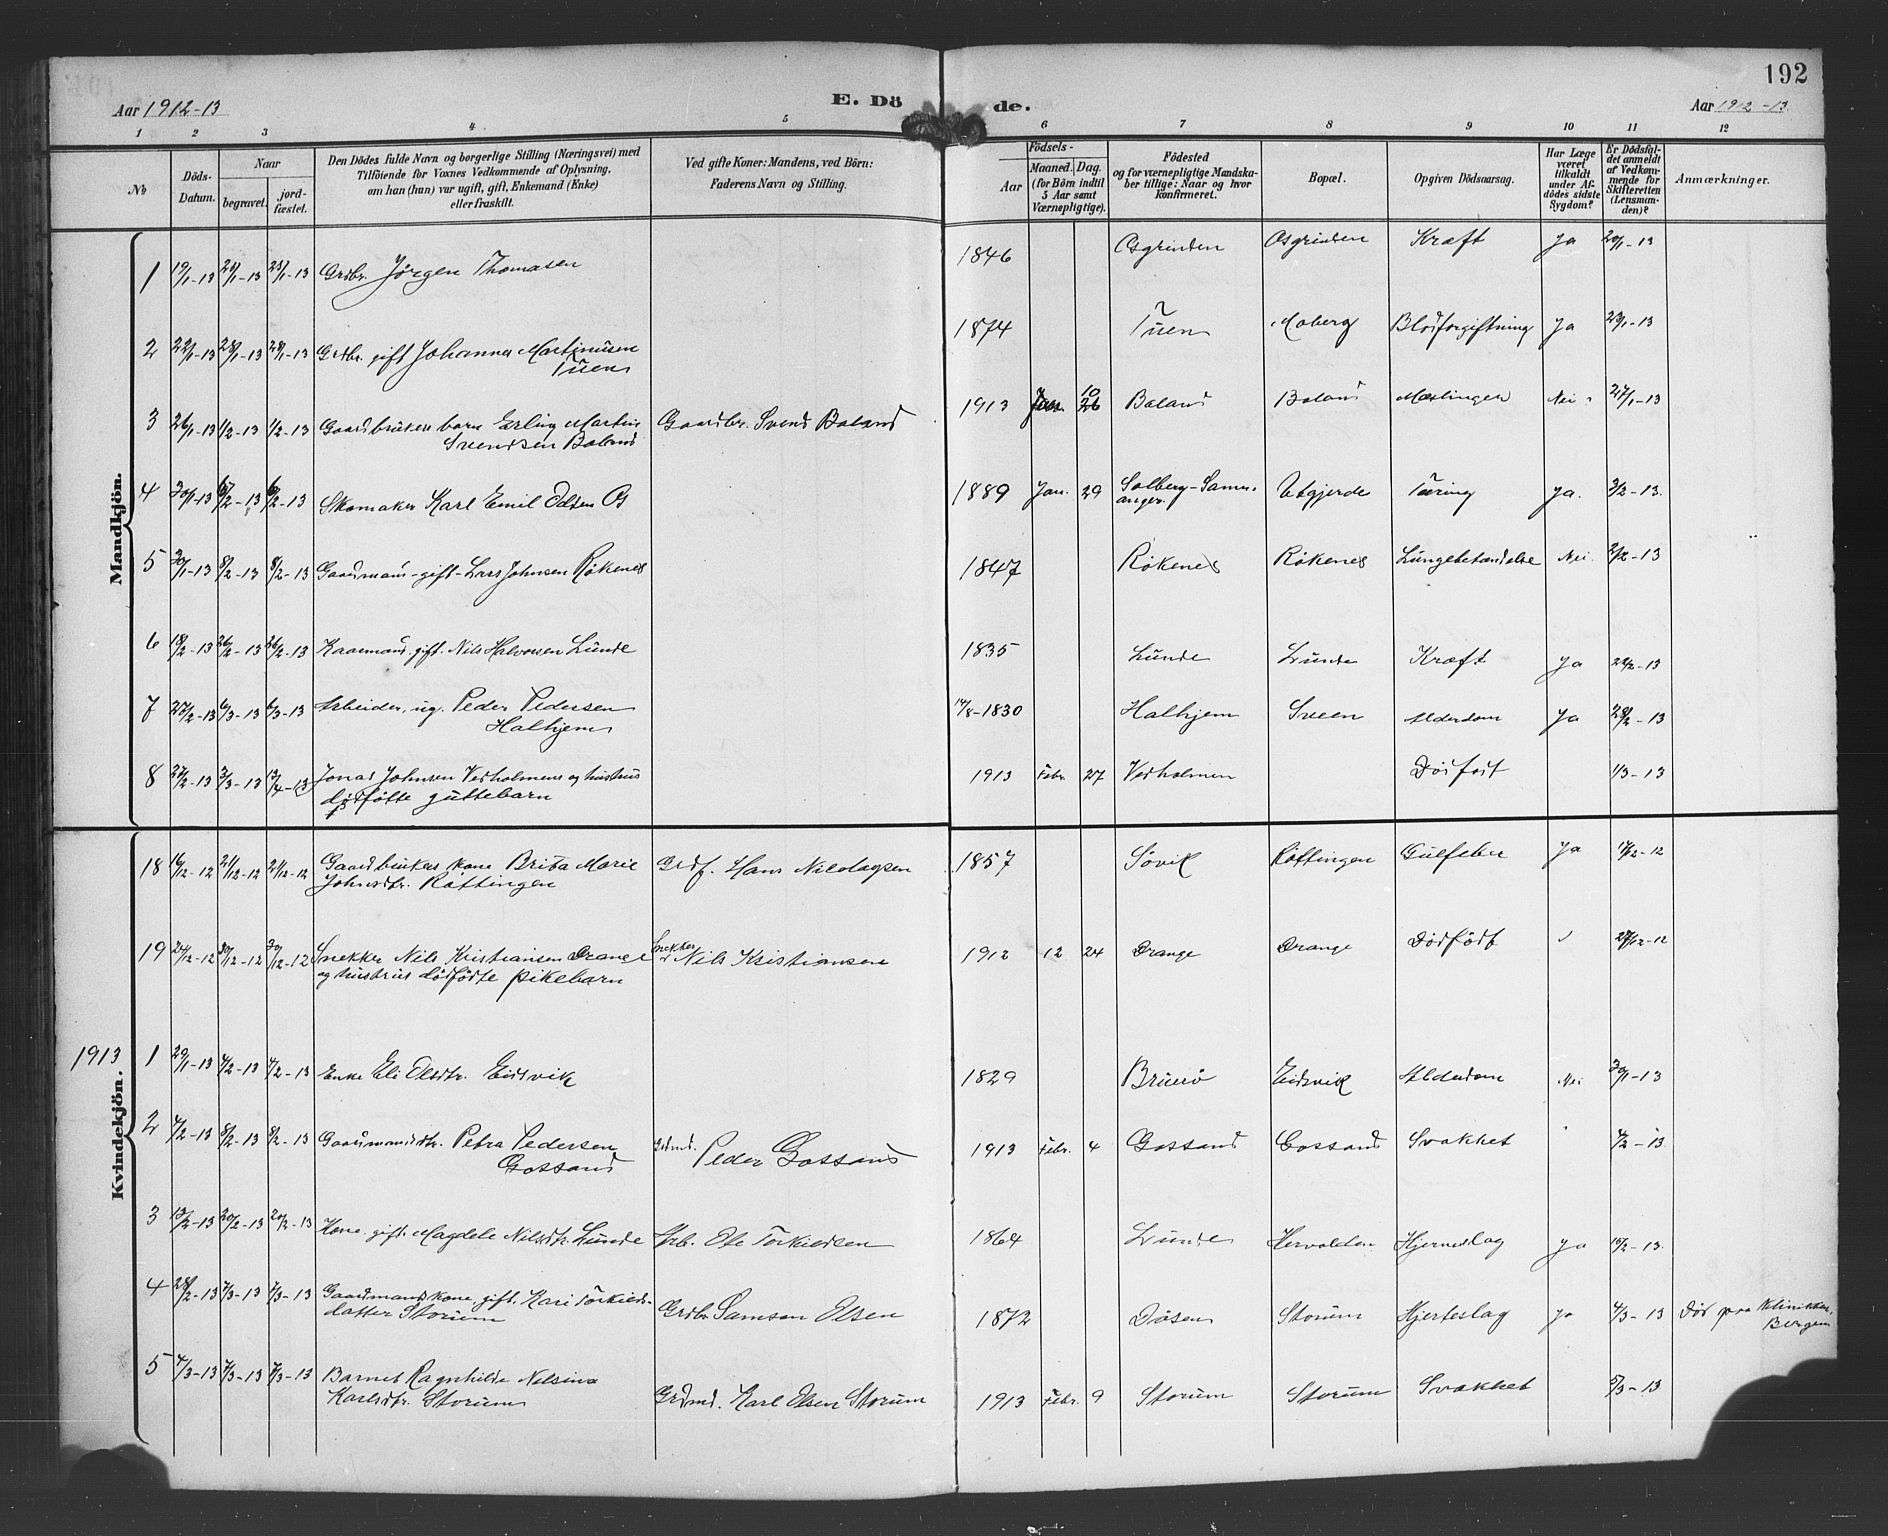 192
Aar 1912-13 E. Dö de. Aar 1912-13.
1 2 3 4 5 6 7 8 9 10 11 12
No
Döds-Datum.
Naar
begravet.
jord-fæstet.
Den Dödes fulde Navn og borgerlige Stilling (Næringsvei) med
Tilföiende for Voxnes Vedkommende af Oplysning,
om han (hun) var ugift, gift, Enkemand (Enke)
eller fraskilt.
Ved gifte Koner: Mandens, ved Börn:
Faderens Navn og Stilling.
Födsels-
Aar
Maaned. Dag.
(for Börn indtil
5 Aar samt
Værnepligtige).
Födested
og for værnepligtige Mandska-
ber tillige: Naar og hvor
konfirmeret.
Bopæl.
Opgiven Dödsaarsag.
Har Læge
været
tilkaldt
under Af-
dödes sidste
Sygdom?
Er Dödsfal-
det anmeldt
af Vedkom-
mende for
Skifteretten
(Lensman-
den)?
Anmærkninger.
Mandkjön.
1 19/1-13 25/1-13 25/1-13 Grdbr. Jörgen Thomasen 1846 Osgrinden Osgrinden Kræft Ja 20/1-13
2 22/1-13 28/1-13 28/1-13 Grdbr. gift Johannes Martinusen
Tuen 1874 Tuen Moberg Blodforgiftning Ja 23/1-13
3 26/1-13 1/2-13 1/2-13 Gaardbrukers barn Erling Martin
Svendsen Boland Gaardbr. Svend Boland 1913 Jan. 10 26 Boland Boland Mæslinger Nei 27/1-13
4 30/1-13 6/2-13 6/2-13 Skomaker Karl Emil Olsen Os 1889 Jan. 29 Solberg-Samn-
anger Utgjerde Tæring Ja. 3/2-13.
5 30/1-13 8/2-13 8/2-13 Gaardmand-gift-Lars Johnsen Røkenes 1847 Røkenes Røkenes Lungebetændelse Nei. 2/2-13
6 18/2-13 26/2-13 26/2-13 Kaarmand. gift. Nils Halvorsen Lunde 1835 Lunde Lunde Kræft Ja 22/2-13
7 27/2-13 6/3-13 6/3-13 Arbeider, ug. Peder Pedersen
Halhjem 1830 Halhjem Sveen Alderdom Ja 28/2-13
8 27/2-13 3/3-13 13/4-13 Jonas Johnsen Vedholmens og hustrus
dödfötte guttebarn 1913 Febr. 27 Vedholmen Dödföd 1/3-13
Kvindekjön.
18 16/12-12 21/12-12 21/12-12 Gaardbrukers kone Brita Marie
Johnsdtr. Röttingen Grdf. Hans Nikolaysen 1857 Søvik Röttingen Gulfeber Ja 17/12-12
19 24/12-12 30/12-12 30/12-12 Snekker Nils Kristiansen Drange
og hustrus dödfödte pikebarn Snekker
Nils Kristiansen 1912 12 24 Drange Drange Dödfödt 27/12-12
1913
1 29/1-13 4/2-13 4/2-13 Enke Eli Olsdtr. Eidsvik 1829 Bruerö Eidsvik Alderdom Nei 30/1-13
2 4/2-13 8/2-13 8/2-13 Gaardmandsdtr. Petra Pedersen
Gossand Grdmd. Peder Gossand 1913 Febr. 4 Gossand Gossand Svakhet 4/2-13
3 13/2-13 20/2-13 20/2-13 Kone. gift. Magdele Nilsdtr. Lunde Arb. Ole Torkildsen 1864 Lunde Hjerneslag Ja 15/2-13.
4 28/2-13 7/3-13 7/3-13 Gaardmandskone, gift. Kari Torkilds-
datter Storum Grdbr. Samson Olsen 1872 Døsen Storum Hjerteslag Ja 4/3-13 Död paa Klinikken,
Bergen
5 4/3-13 7/3-13 7/3-13 Barnet Ragnhilda Nilsina
Karlsdtr. Storum Grdmd. Karl Olsen Storum 1913 Febr. 9 Storum Storum Svakhet 5/3-13